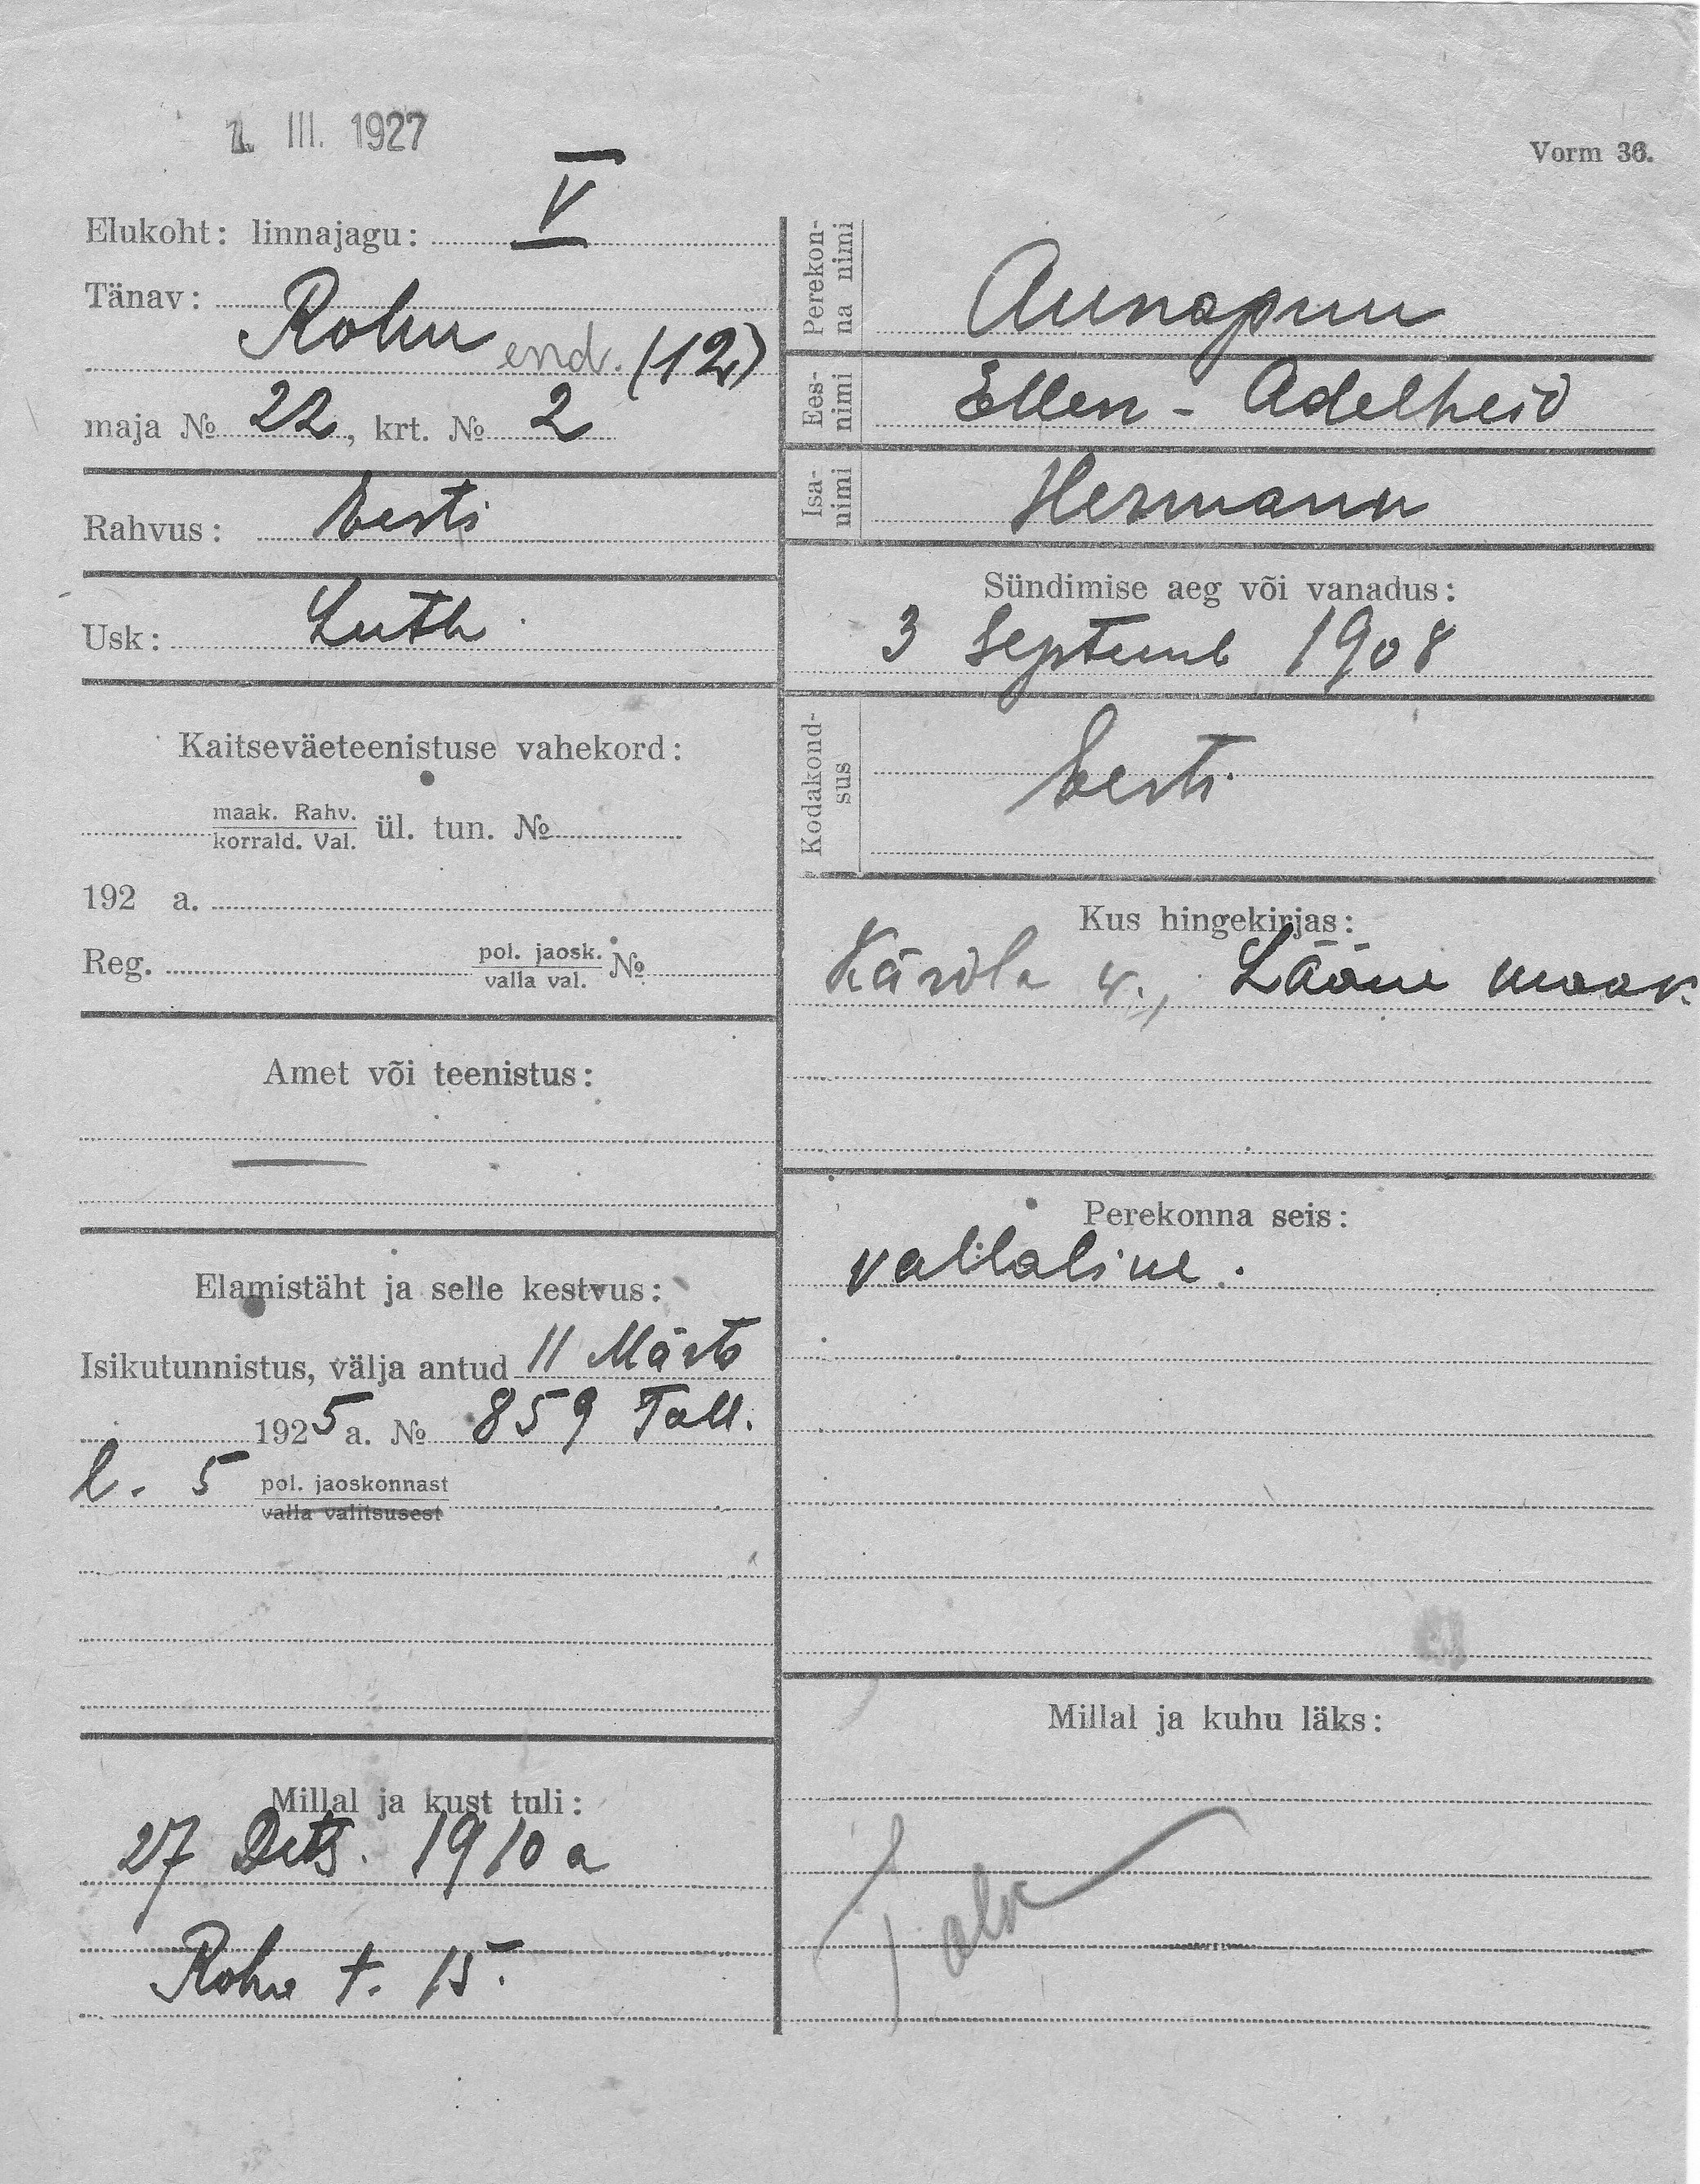 1. III. 1927
Vorm 36.
Elukoht: linnajagu: V
Tänav: Rohu end. (12)
maja № 22, krt. № 2
Rahvus: Eesti
Usk: Luth.
Kaitseväeteenistuse vahekord:
maak. Rahv.
korrald. Val. ül. tun. №
192 a.
Reg. pol. jaosk. №
valla val.
Amet või teenistus:
—
Elamistäht ja selle kestvus:
Isikutunnistus, välja antud 11 Märts
1925 a. № 859 Tall.
l. 5 pol. jaoskonnast
valla valitsusest
Millal ja kust tuli:
27 Dets. 1910 a
Rohu t. 15.
Perekon-
na nimi
Aunapuu
Ees-
nimi
Ellen - Adelheid
Isa-
nimi
Hermann
Sündimise aeg või vanadus:
3 Septemb 1908
Kodakond-
sus
Eesti
Kus hingekirjas:
Kärdla v., Lääne maak.
Perekonna seis:
vallaline.
Millal ja kuhu läks: